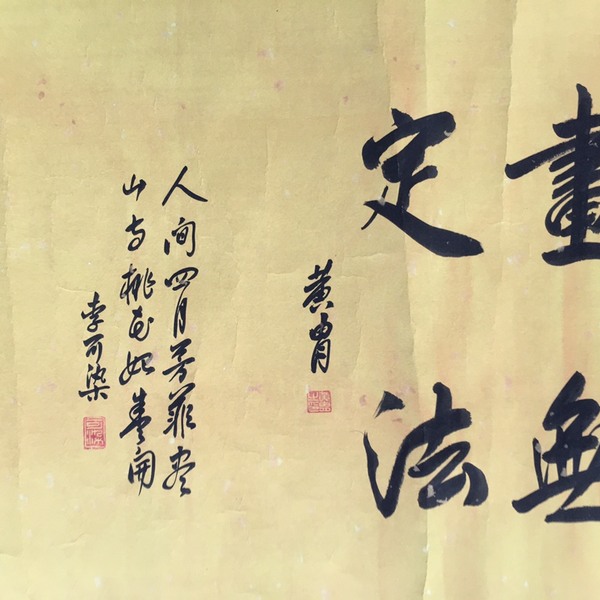 畫無
定法
黄胄
人间四月芳菲尽
山寺桃花始盛開
李可染